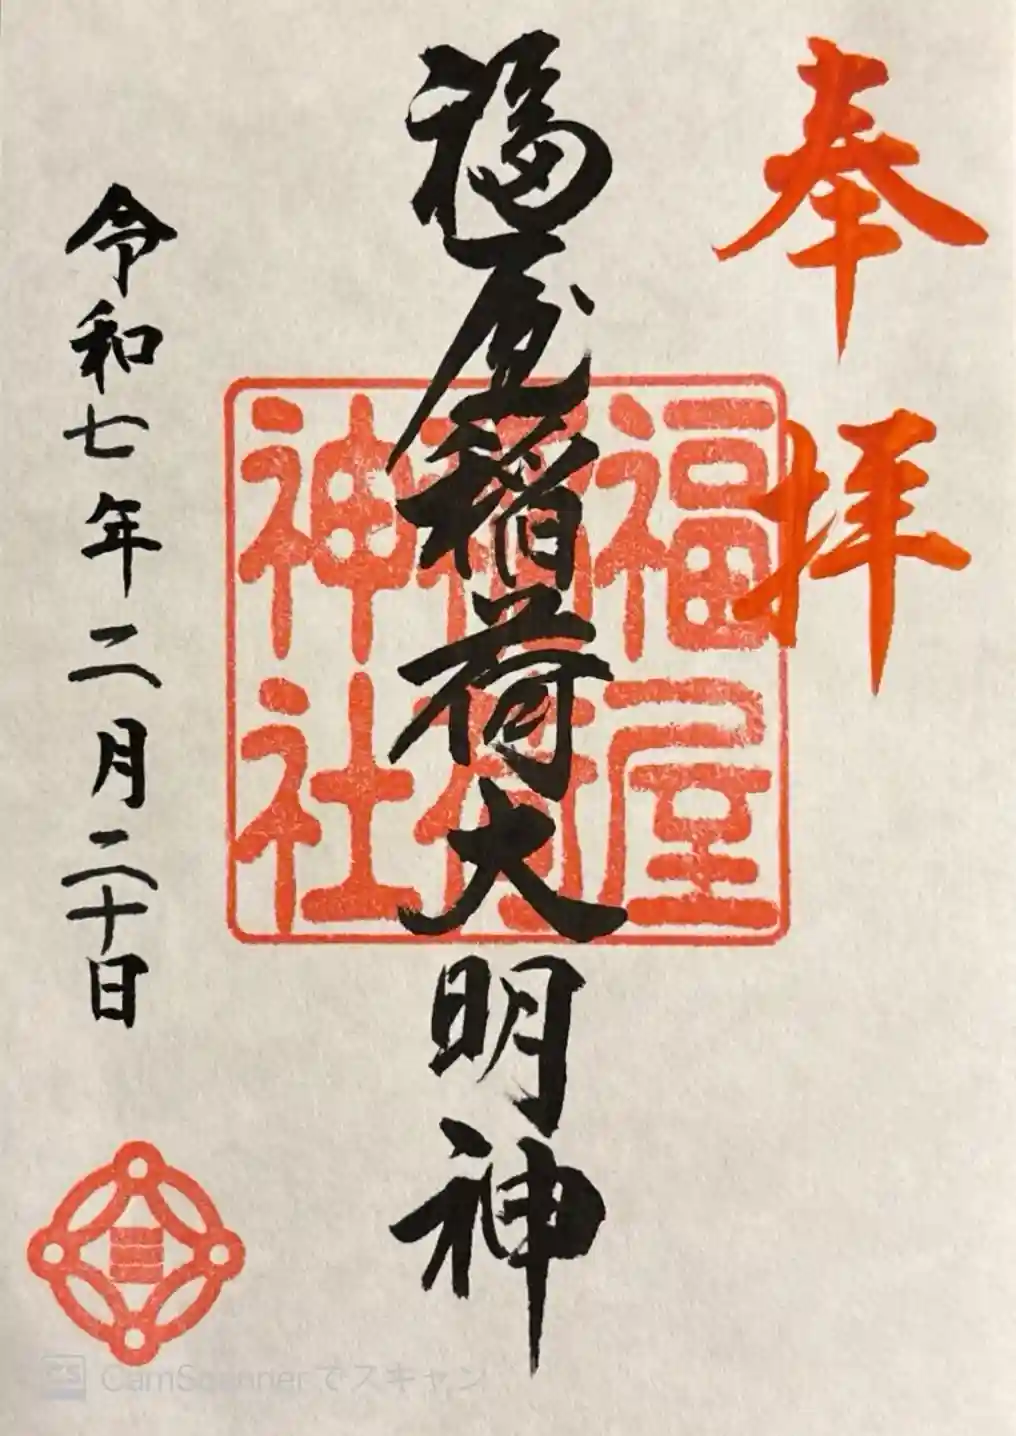 奉拝
福屋稲荷大明神
福屋
稲荷
神社
令和七年二月二十日
CS CamScannerでスキャン